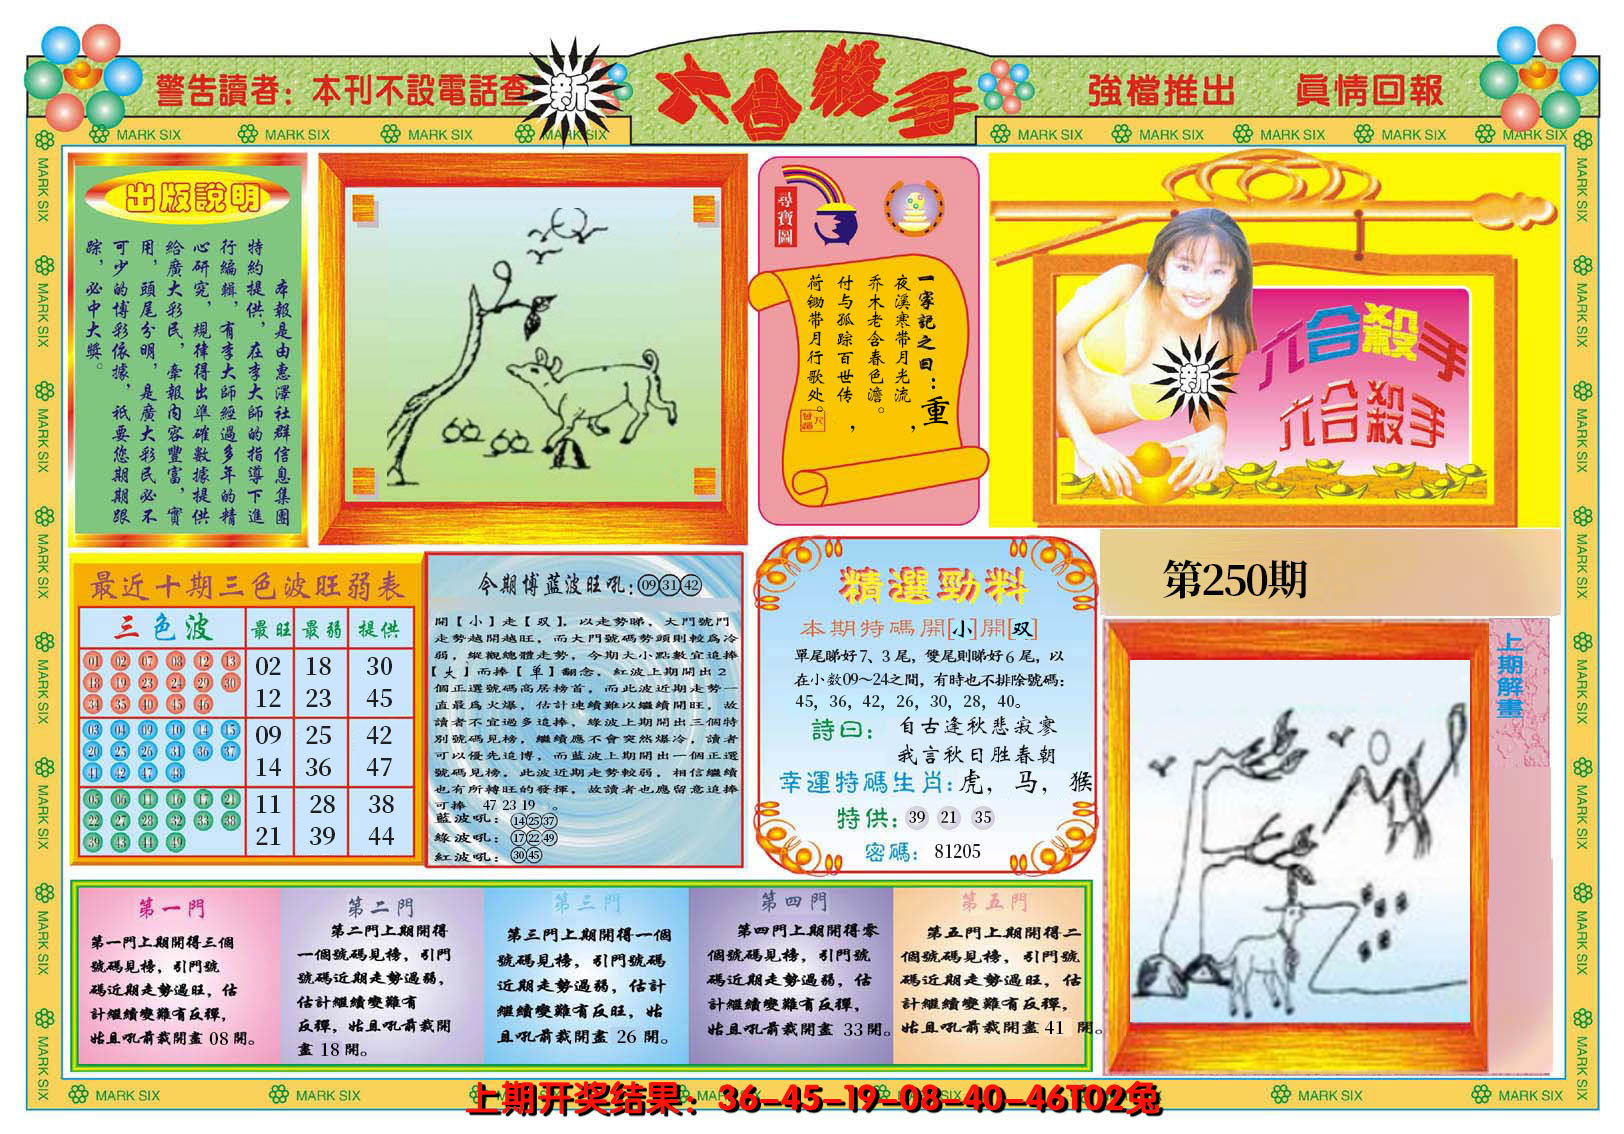 警告讀者：本刊不設電話查
新
六合殺手
強檔推出 眞情回報
MARK SIX MARK SIX MARK SIX MARK SIX
MARK SIX MARK SIX MARK SIX MARK SIX MARK SIX
出版說明
本報是由惠澤社群信息集團
特約提供，在李大師的指導下進
行編輯，有李大師經過多年的精
心研究，規律得出準確數據提供
給廣大彩民，牽報內容豐富，實
用，頭尾分明，是廣大彩民必不
可少的博彩依據，祇要您期期跟
踪，必中大獎。
尋寶圖
一字記之曰：重
夜溪寒带月光流，
乔木老含春色澹。
付与孤踪百世传，
荷锄带月行歌处。
六合殺手
六合殺手
新
第250期
最近十期三色波旺弱表
三色波 最旺 最弱 提供
01 02 07 08 12 13
18 19 23 24 29 30
34 35 40 45 46
02 18 30
12 23 45
03 04 09 10 14 15
20 25 26 31 36 37
41 42 47 48
09 25 42
14 36 47
05 06 11 16 17 21
22 27 28 32 33 38
39 43 44 49
11 28 38
21 39 44
今期博蓝波旺吼：09 31 42
開【小】走【双】，以走勢睇，大門號門
走勢越開越旺，而大門號碼勢頭則較爲冷
弱，縱觀總體走勢，今期大小點數宜追捧
【大】而捧【单】翻念，紅波上期開出2
個正選號碼高居榜首，而此波近期走勢一
直最爲火爆，估計連續難以繼續開旺，故
讀者不宜過多追捧，綠波上期開出三個特
別號碼見榜，繼續應不會突然爆冷，讀者
可以優先追博，而藍波上期開出一個正選
號碼見榜，此波近期走勢較弱，相信繼續
也有所轉旺的發揮，故讀者也應留意追捧
可捧 47 23 19 。
藍波吼：14 25 37
綠波吼：17 22 49
紅波吼：30 45
精選勁料
本期特碼開[小]開[双]
單尾睇好7、3尾，雙尾則睇好6尾，以
在小数09～24之間，有時也不排除號碼：
45，36，42，26，30，28，40。
詩曰：自古逢秋悲寂寥
我言秋日胜春朝
幸運特碼生肖：虎，马，猴
特供：39 21 35
密碼：81205
上期解畫
第一門
第一門上期開得三個
號碼見榜，引門號
碼近期走勢過旺，估
計繼續變難有反彈，
姑且吼前裁開畫 08 開。
第二門
第二門上期開得
一個號碼見榜，引門
號碼近期走勢過弱，
估計繼續變難有
反彈，姑且吼前裁開
畫 18 開。
第三門
第三門上期開得一個
號碼見榜，引門號碼
近期走勢過弱，估計
繼續變難有反旺，姑
且吼前裁開畫 26 開。
第四門
第四門上期開得零
個號碼見榜，引門號
碼近期走勢過弱，估
計繼續變難有反彈，
姑且吼前裁開畫 33 開。
第五門
第五門上期開得二
個號碼見榜，引門號
碼近期走勢過旺，估
計繼續變難有反彈，
姑且吼前裁開畫 41 開。
上期开奖结果：36-45-19-08-40-46T02兔